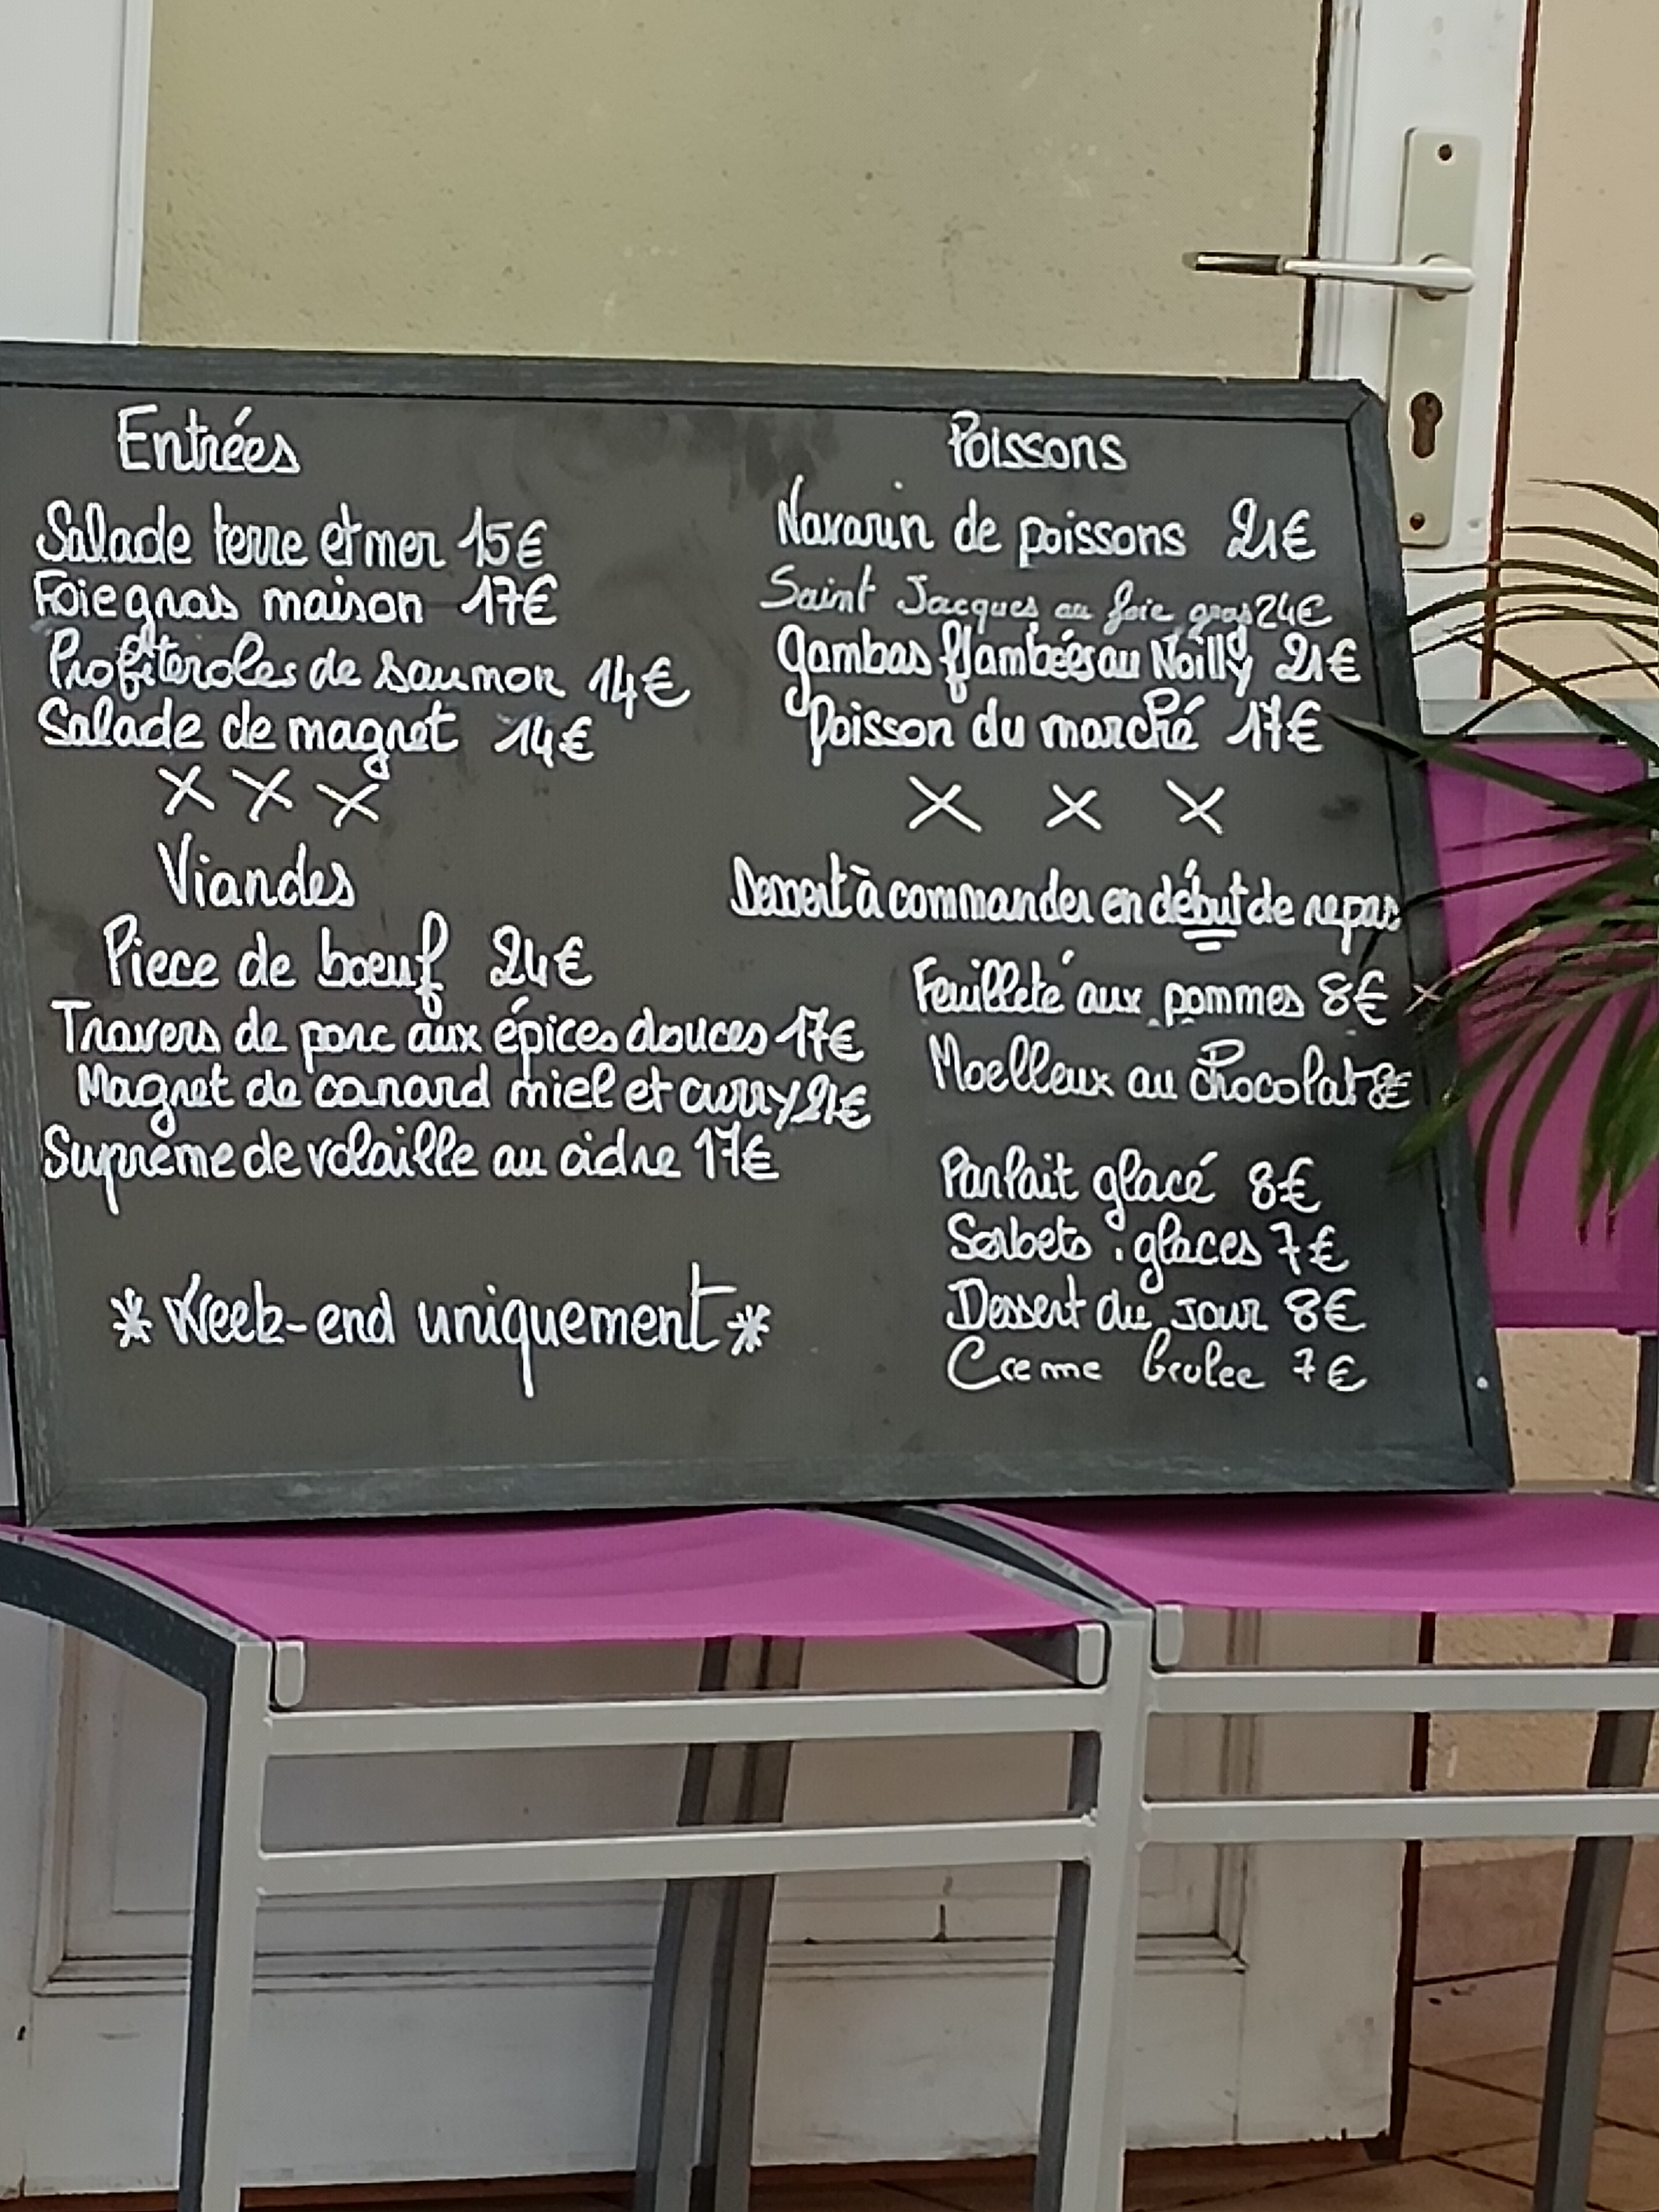 Entrées
Salade terre et mer 15€
Foie gras maison 17€
Profiteroles de saumon 14€
Salade de magret 14€
X X X
Viandes
Piece de bœuf 24€
Travers de porc aux épices douces 17€
Magret de canard miel et curry 21€
Suprême de volaille au cidre 17€
* Week-end uniquement *
Poissons
Navarin de poissons 21€
Saint Jacques au foie gras 24€
Gambas flambées au Noilly 21€
Poisson du marché 17€
X X X
Dessert à commander en début de repas
Feuilleté aux pommes 8€
Moelleux au chocolat 8€
Parfait glacé 8€
Sorbets . glaces 7€
Dessert du jour 8€
Creme brulee 7€